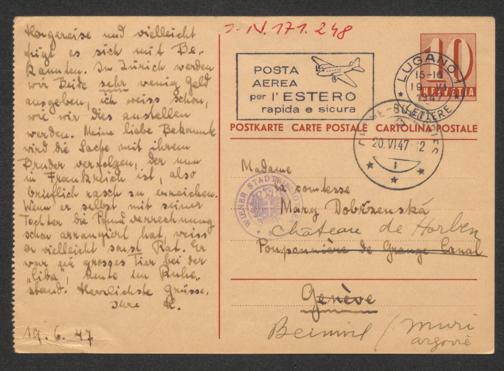 I.N. 171.248
Kongereise und vielleicht
fügt es sich mit Be-
kannten. In Zürich werden
wir Beide sehr wenig Geld
ausgeben, ich weiss schon,
wie wir dies anstellen
werden. Meine liebe Bekannte
wird die Sache mit ihrem
Bruder verfolgen, der nun
in Frankreich ist, also
brieflich rasch zu erreichen.
Wenn er selbst mit seiner
Tochter die Pfundverrechnung
schon arrangiert hat, weiss
er vielleicht sonst Rat. Er
war ein grosses Tier bei der
"Ciba", heute im Ruhe-
stand. Herzlichste Grüsse,
Ihre
19.6.47
POSTA
AEREA
per l'ESTERO
rapida e sicura
LUGANO
15-16
19 VI
1947
LETTERE
10
HELVETIA
POSTKARTE CARTE POSTALE CARTOLINA POSTALE
20.VI.47
WIENER STADT
Madame
la comtesse
Mary Dobrzenská
Château de Horben
Pouponnière de Grange Canal
Genève
Beinwil / Muri
Argovie